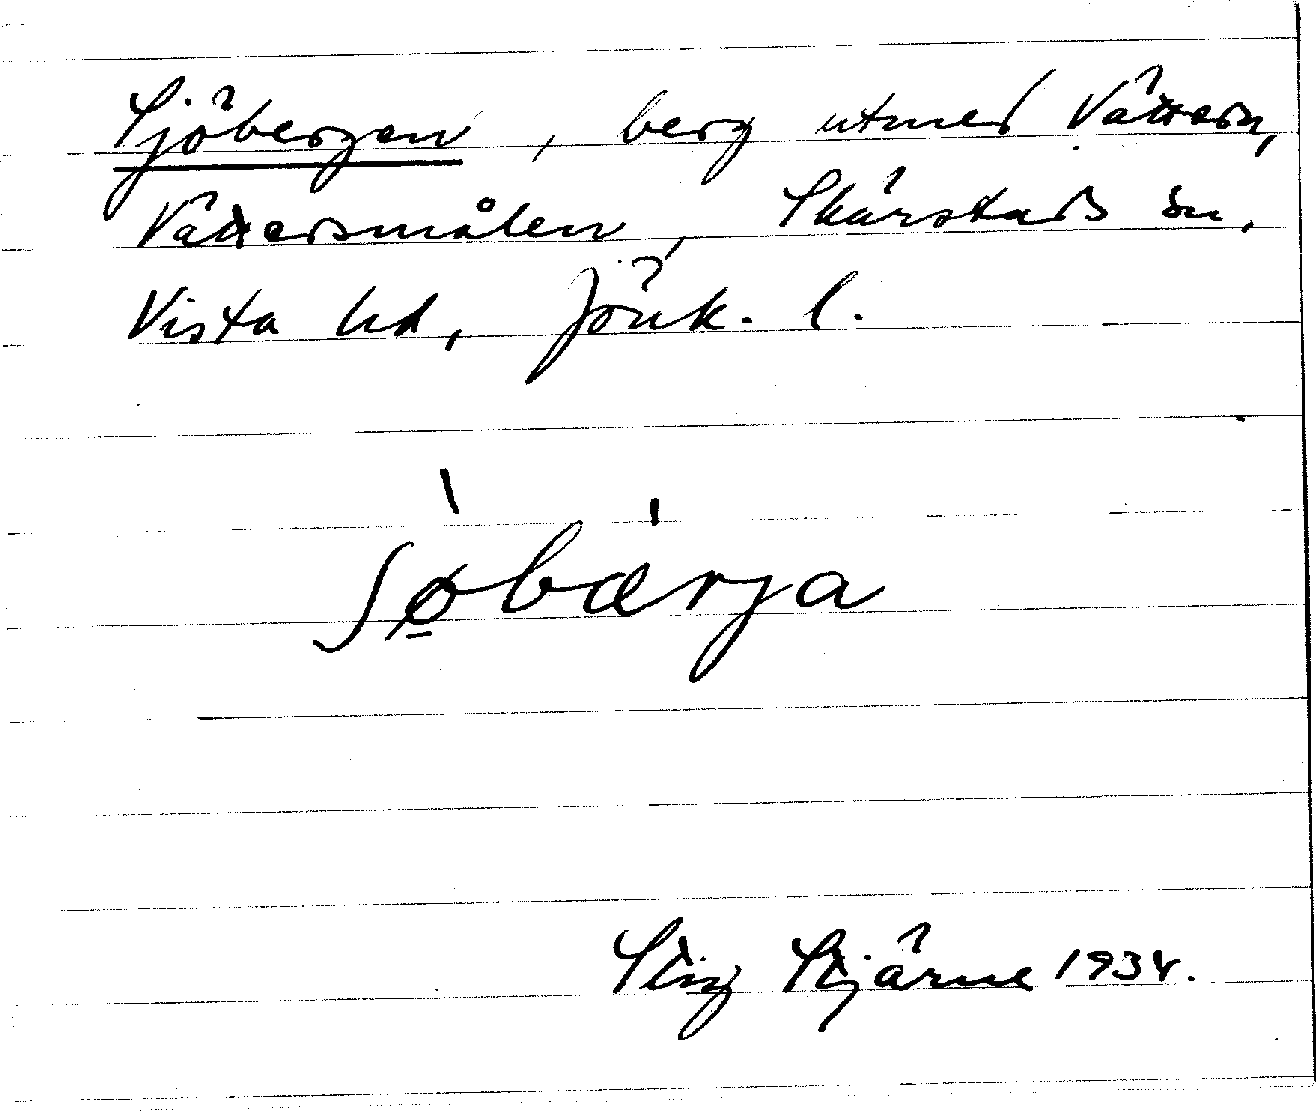 Sjöbergen, berg utmed Vättern,
Vättersmålen, Skärstads sn,
Vista hd, Jönk. l.
ʃøbærja
Stig Stjärne 1934.